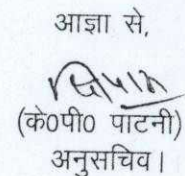 आज्ञा से,
(के0पी0 पाटनी)
अनुसचिव।